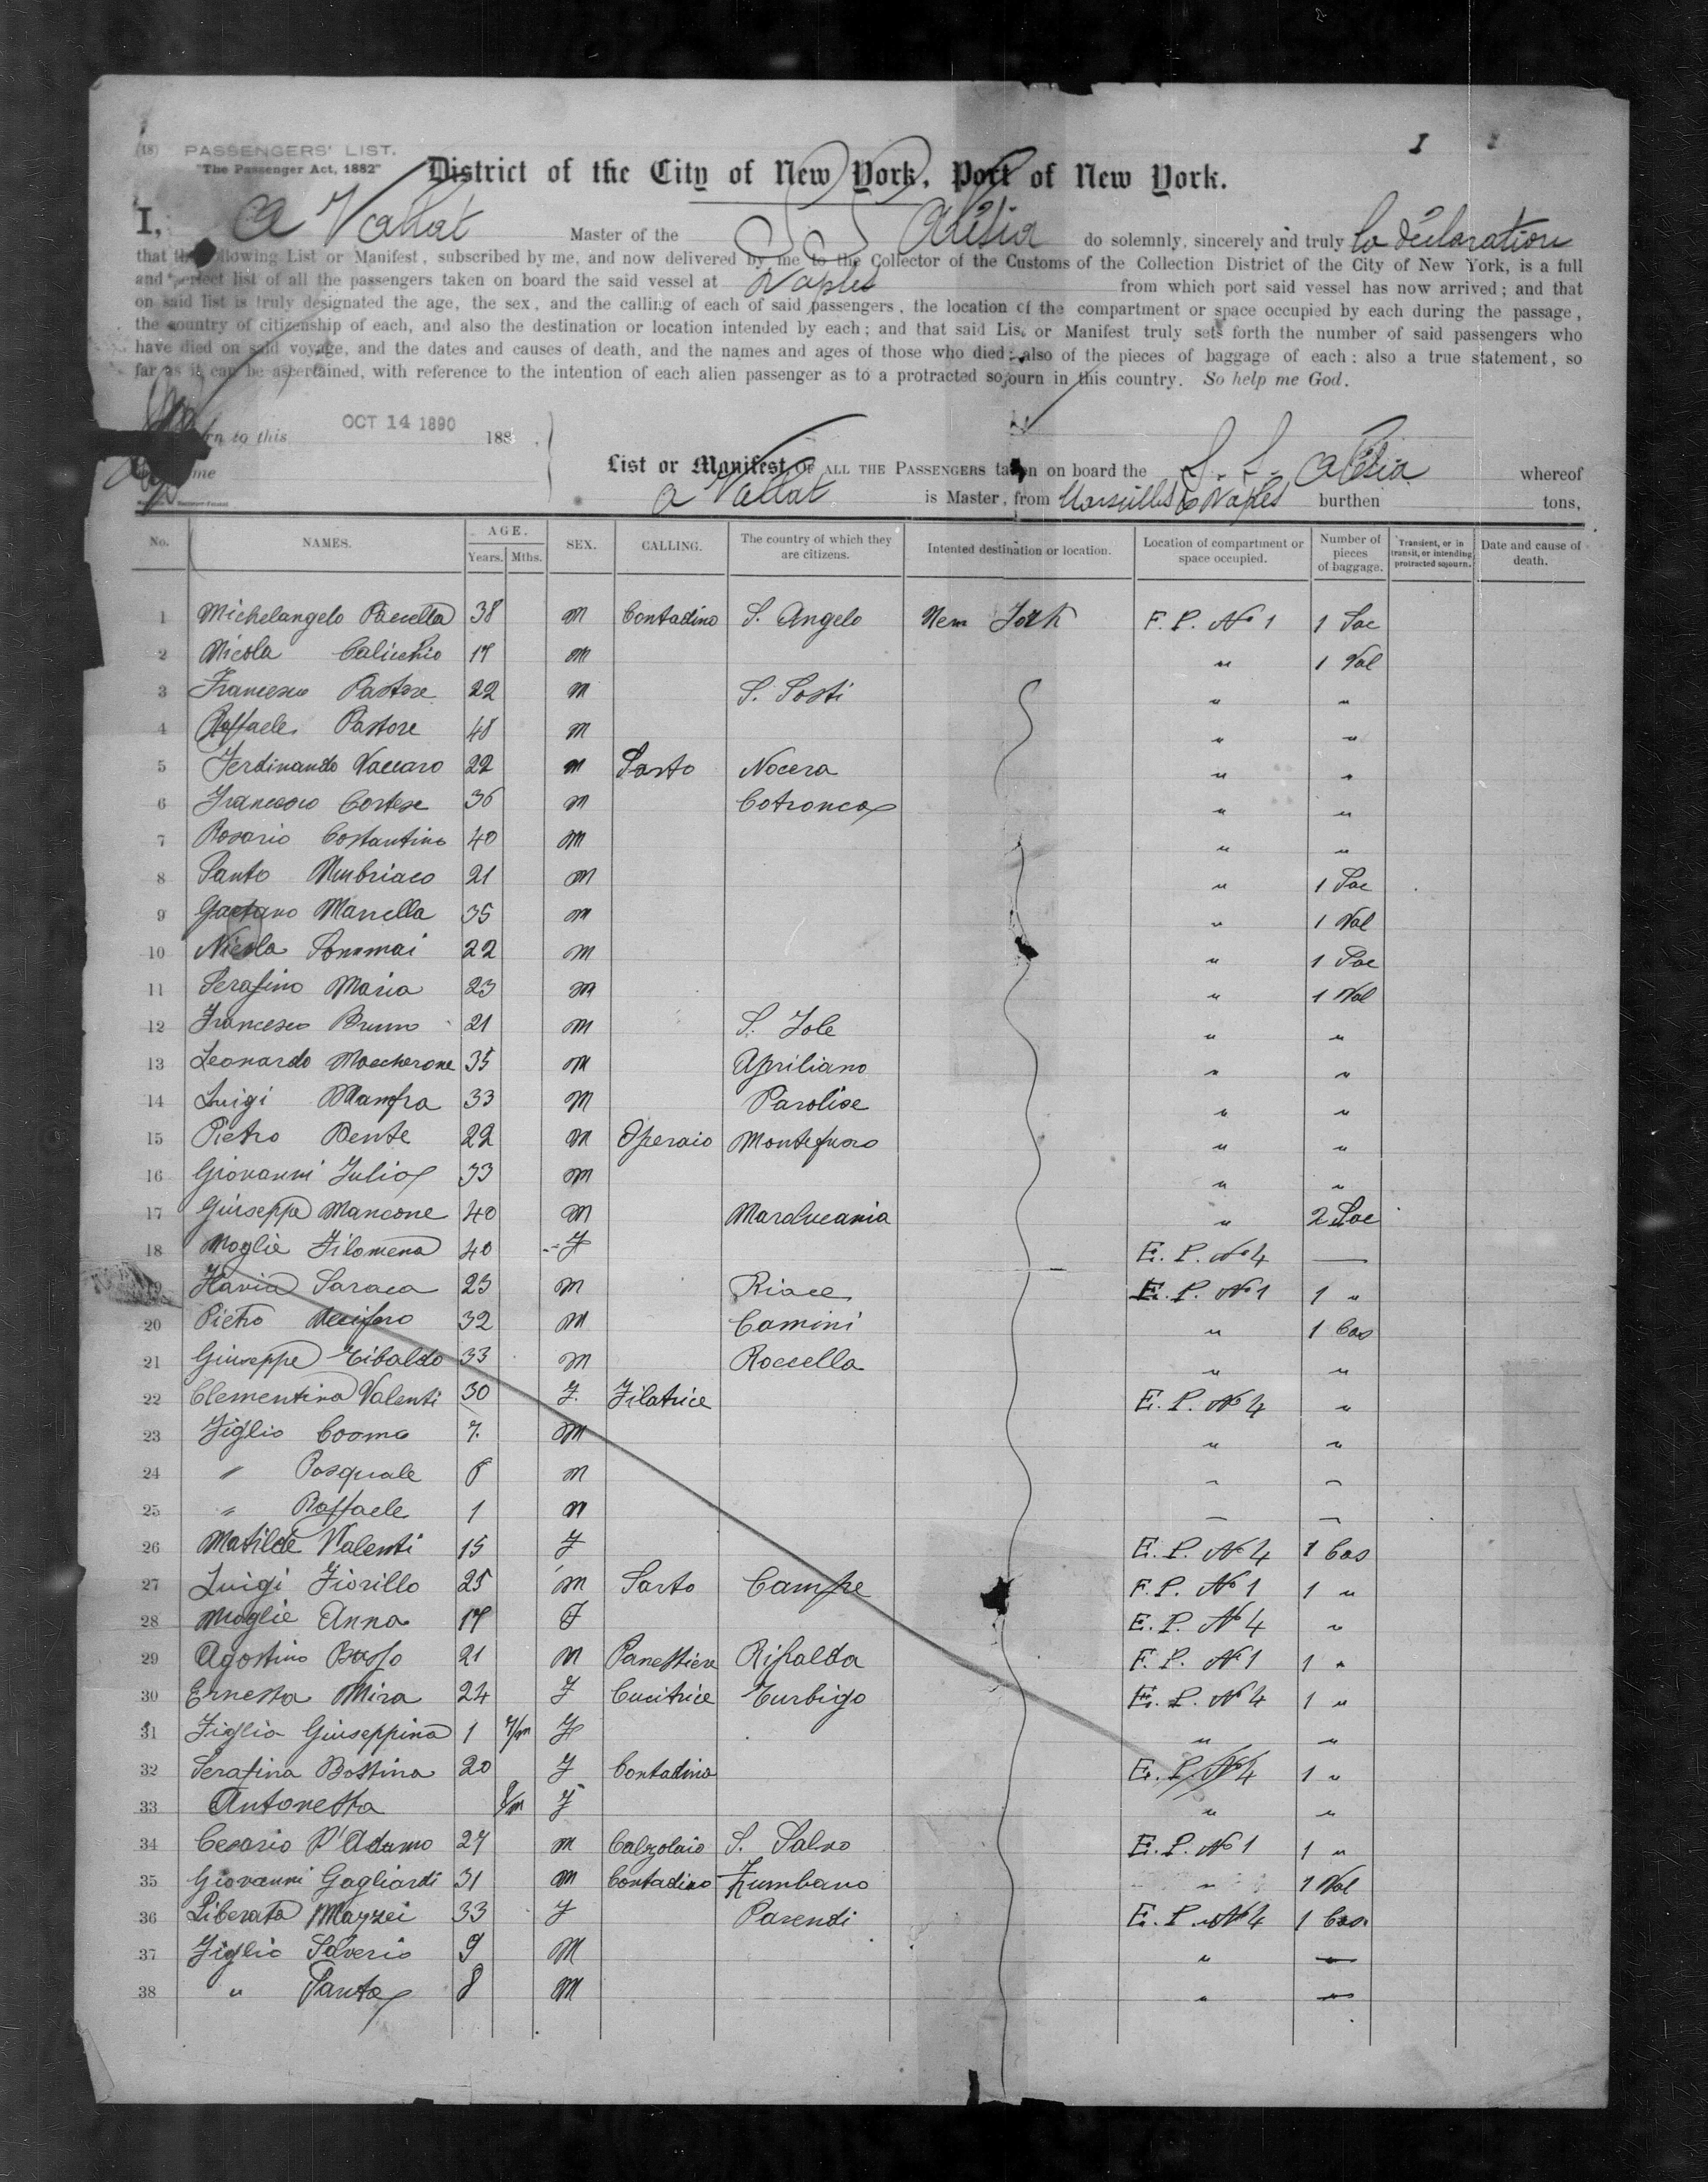 I
(18) PASSENGERS' LIST.
"The Passenger Act, 1882"
District of the City of New York, Port of New York.
I, A Vallat Master of the S S Alésia do solemnly, sincerely and truly la déclaration
that the following List or Manifest, subscribed by me, and now delivered by me to the Collector of the Customs of the Collection District of the City of New York, is a full
and perfect list of all the passengers taken on board the said vessel at Naples from which port said vessel has now arrived; and that
on said list is truly designated the age, the sex, and the calling of each of said passengers, the location of the compartment or space occupied by each during the passage,
the country of citizenship of each, and also the destination or location intended by each; and that said List or Manifest truly sets forth the number of said passengers who
have died on said voyage, and the dates and causes of death, and the names and ages of those who died; also of the pieces of baggage of each; also a true statement, so
far as it can be ascertained, with reference to the intention of each alien passenger as to a protracted sojourn in this country. So help me God.
rn to this OCT 14 1890 188
me
List or Manifest OF ALL THE PASSENGERS taken on board the S. S. Alésia whereof
A Vallat is Master, from Marseilles & Naples burthen tons,
No. NAMES. AGE. Years. Mths. SEX. CALLING. The country of which they are citizens. Intented destination or location. Location of compartment or space occupied. Number of pieces of baggage. Transient, or in transit, or intending protracted sojourn. Date and cause of death.
1 Michelangelo 38 M Contadino S. Angelo New York F. P. No 1 1 Sac
2 Nicola Calicchio 17 M " 1 Val
3 Francesco Pastore 22 M S. Sosti " "
4 Raffaele Pastore 48 M " "
5 Ferdinando Vaccaro 22 M Sarto Nocera " "
6 Francesco Cortese 36 M Cotronco " "
7 Rosario Costantino 40 M " "
8 Santo Mubriaco 21 M " 1 Sac
9 Gaetano Marrella 35 M " 1 Val
10 Nicola Sommai 22 M " 1 Sac
11 Serafino Maria 23 M " 1 Val
12 Francesco Bruno 21 M S. Iole " "
13 Leonardo Maccherone 35 M Apriliano " "
14 Luigi Manfra 33 M Parolise " "
15 Pietro Dente 22 M Operaio Montefusco " "
16 Giovanni Julio 33 M " "
17 Giuseppe Mancone 40 M " 2 Sac
18 Moglie Filomena 40 F E. P. No 4 —
19 Flavia Saraca 23 M Riace E. P. No 1 1 "
20 Pietro 32 M Camini " 1 Cas
21 Giuseppe Tibaldo 33 M Roccella " "
22 Clementina Valenti 30 F. Filatrice E. P. No 4 "
23 Figlio Cosmo 7. M " "
24 " Pasquale M " "
25 " Raffaele 1 M " "
26 Matilde Valenti 15 F E. P. No 4 1 Cas
27 Luigi Fiorillo 25 M Sarto F. P. No 1 1 "
28 Moglie Anna 17 F E. P. No 4 "
29 Agostino 21 M Panettiere Ripalda F. P. No 1 1 "
30 Ernesta Mira 24 F Cucitrice Turbigo E. P. No 4 1 "
31 Figlia Giuseppina 1 7/m F " "
32 Serafina Bottina 20 F Contadina E. P. No 4 1 "
33 Antonetta 8/m F " "
34 Cesario D'Adamo 27 M Calzolaio S. Salvo E. P. No 1 1 "
35 Giovanni Gagliardi 31 M Contadino Zumbano " 1 Val
36 Liberata Mazzei 33 F Parendi E. P. No 4 1 Cas.
37 Figlio Saverio 9 M " —
38 " Santo 8 M " —